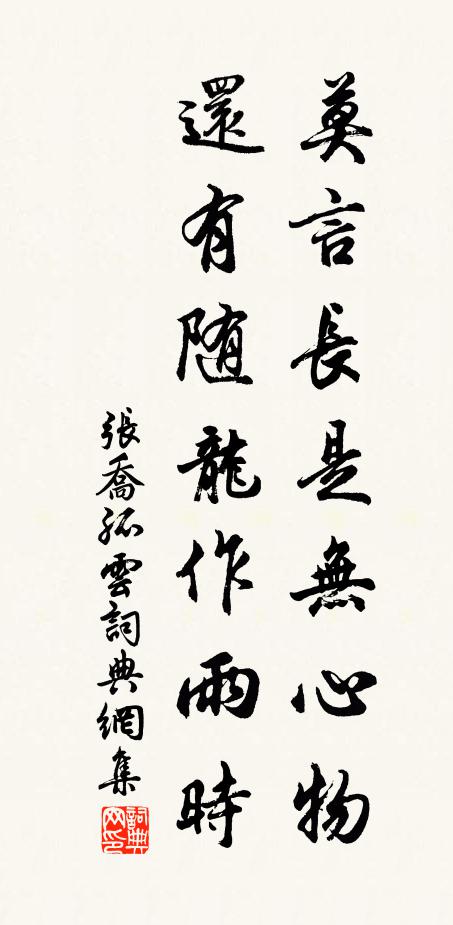 莫言長是無心物
還有随龍作雨時
張喬孤雲詞典網集
詞典
网印